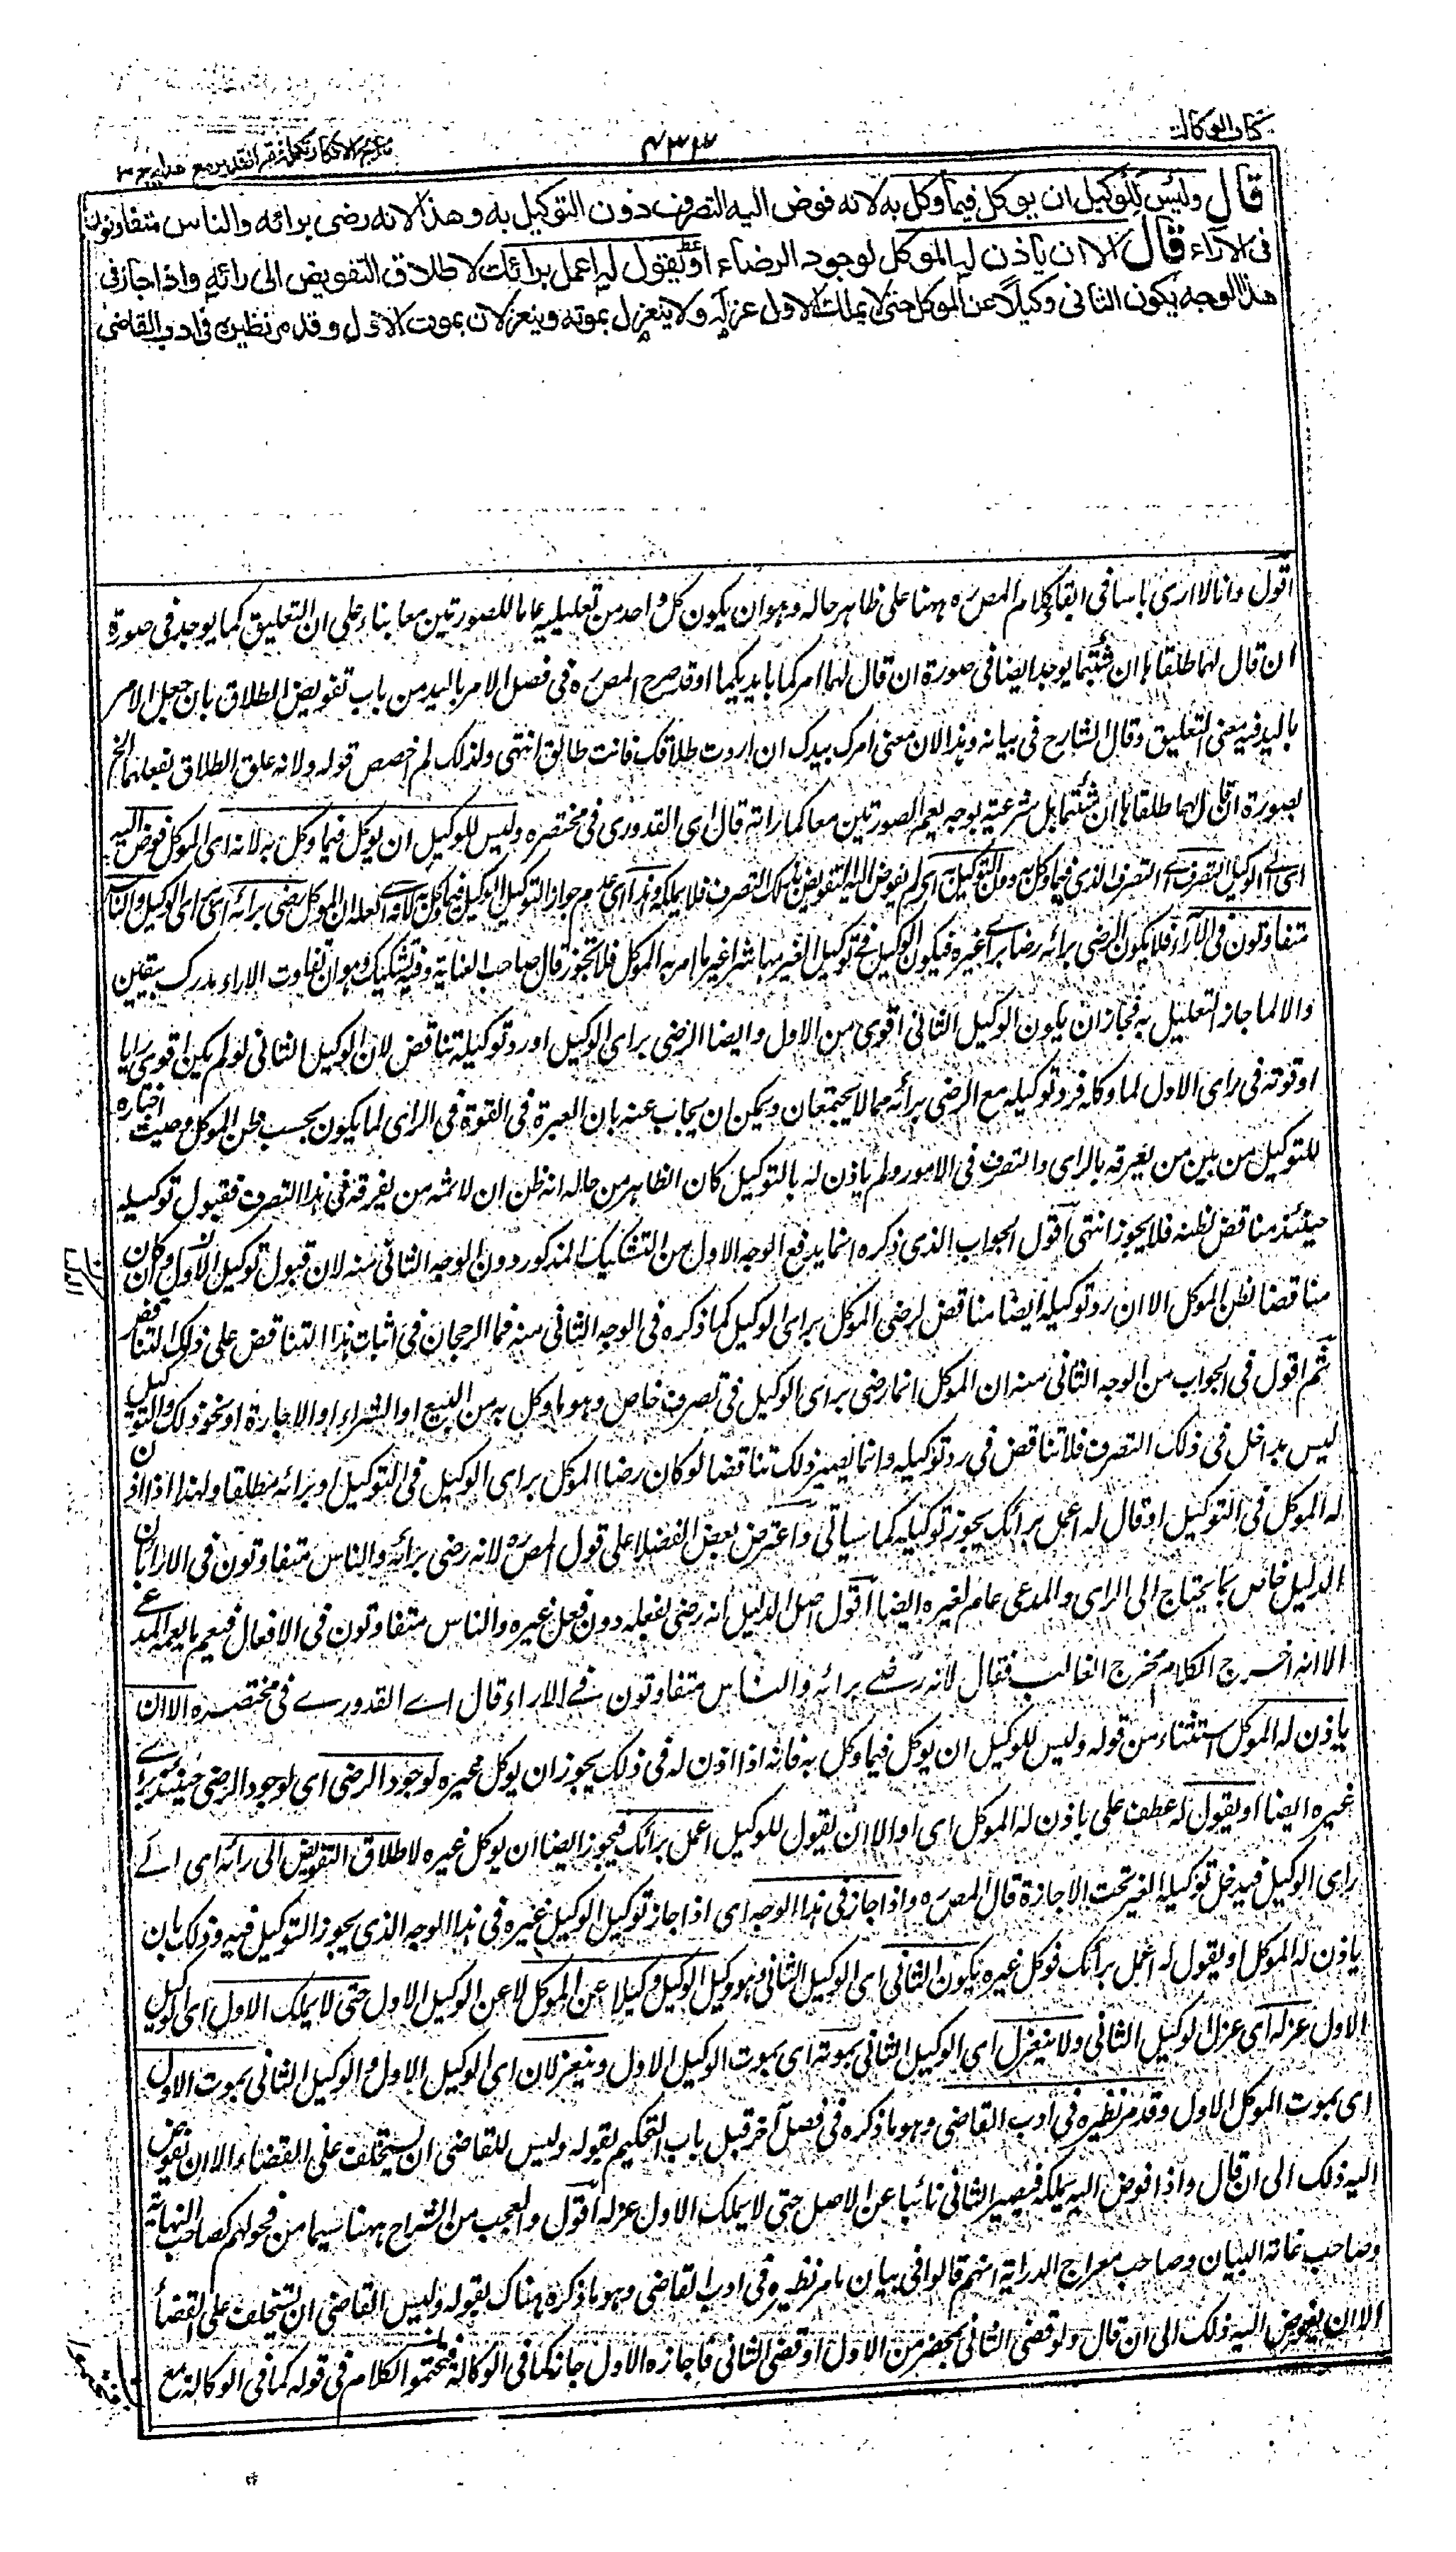 كتاب الوكالة
نتائج الافكار تكملة فتح القدير مع هداية ج ٣
قال وليس للوكيل ان يوكل فيما وكل به لانه فوض اليه التصرف دون التوكيل به وهذا لانه رضى برائه والناس متفاوتون
فى الاراء قال الا ان ياذن له الموكل لوجود الرضاء او يقول له اعمل برائك لاطلاق التفويض الى رائه واذا جاز فى
هذا الوجه يكون الثانى وكيلا عن الموكل حتى لا يملك الاول عزله ولا ينعزل بموته وينعزلان بموت الاول وقد مر نظيره فى ادب القاضى
اقول وانا لا ارى باسا فى ابقاء كلام المص ره ههنا على ظاهر حاله وهو ان يكون كل واحد من تعليليه عاما للصورتين معا بناء على ان التعليق كما يوجد فى صورة
ان قال لهما طلقاها ان شئتما يوجد ايضا فى صورة ان قال لهما امركما بايديكما اوقد صرح المص ره فى فصل الامر باليد من باب تفويض الطلاق بان جعل الامر
باليد فيه معنى التعليق وقال الشارح فى بيانه وهذا لان معنى امرك بيدك ان اردت طلاقك فانت طالق انتهى ولذلك لم اخصص قوله ولانه علق الطلاق بفعلهما الخ
بصورة ان قال لهما طلقاها ان شئتما بل شرحته بوجه يعم الصورتين معا كما رايته قال اى القدورى فى مختصره وليس للوكيل ان يوكل فيما وكل به لانه اى الموكل فوض اليه
اى الى الوكيل التصرف اى التصرف الذى فيما وكل به دون التوكيل به اى لم يفوض اليه التوكيل بذلك التصرف فلا يملكه وهذا اى عدم جواز التوكيل للوكيل فيما وكل به لانه اى لعلة ان الموكل رضى برائه اى براى الوكيل والناس
متفاوتون فى الآراء فلا يكون الرضى برائه رضا براى غيره فيكون الوكيل فى توكيل الغير مباشرا غير ما امر به الموكل فلا تجوز قال صاحب العناية وفيه تشكيك وهو ان تفاوت الاراء مدرك بيقين
والا لما جاز التعليل به فجاز ان يكون الوكيل الثانى اقوى من الاول وايضا الرضى براى الوكيل ورد توكيله تناقض لان الوكيل الثانى لو لم يكن اقوى رايا
او قوته فى راى الاول لما وكله فرد توكيله مع الرضى برائه مما لا يجتمعان ويمكن ان يجاب عنه بان العبرة فى القوة فى الراى لما يكون بحسب ظن الموكل وحيث اختاره
للتوكيل من بين من يعرفه بالراى والتصرف فى الامور ولم ياذن له بالتوكيل كان الظاهر من حاله انه ظن ان لا ثمه من يفوقه فى هذا التصرف فقبول توكيله
حينئذ مناقض لظنه فلا يجوز انتهى اقول الجواب الذى ذكره انما يدفع الوجه الاول من التشكيك المذكور دون الوجه الثانى منه لان قبول توكيل الاول وان كان
مناقضا لظن الموكل الا ان رد توكيله ايضا مناقض لرضى الموكل براى الوكيل كما ذكره فى الوجه الثانى منه فما الرجحان فى اثبات هذا التناقض على ذلك التناقض
ثم اقول فى الجواب من الوجه الثانى منه ان الموكل انما رضى براى الوكيل فى تصرف خاص وهو ما وكل به من البيع او الشراء او الاجارة او نحو ذلك والتوكيل
ليس بداخل فى ذلك التصرف فلا تناقض فى رد توكيله وانما يصير ذلك تناقضا لو كان رضا الموكل براى الوكيل فى التوكيل او برائه مطلقا ولهذا اذا اذن
له الموكل فى التوكيل او قال له اعمل برائك يجوز توكيله كما سياتى واعترض بعض الفضلا على قول المص ره لانه رضى برائه والناس متفاوتون فى الارا بان
الدليل خاص بما يحتاج الى الراى والمدعى عام لغيره ايضا اقول اصل الدليل انه رضى بفعله دون فعل غيره والناس متفاوتون فى الافعال فيعم ما يعمه المدعى
الا انه اخرج الكلام مخرج الغالب فقال لانه رضى برائه والناس متفاوتون فى الاراء قال اى القدورى فى مختصره الا ان
ياذن له الموكل استثناء من قوله وليس للوكيل ان يوكل فيما وكل به فانه اذا اذن له فى ذلك يجوز ان يوكل غيره لوجود الرضى اى لوجود الرضى حينئذ براى
غيره ايضا او يقول له عطف على ياذن له الموكل اى او الا ان يقول للوكيل اعمل برائك فيجوز ايضا ان يوكل غيره لاطلاق التفويض الى رائه اى الى
راى الوكيل فيدخل توكيله الغير تحت الاجازة قال المص ره واذا جاز فى هذا الوجه اى اذا جاز توكيل الوكيل غيره فى هذا الوجه الذى يجوز التوكيل فيه وذلك بان
ياذن له الموكل او يقول له اعمل برائك فوكل غيره يكون الثانى اى الوكيل الثانى وهو وكيل الوكيل وكيلا عن الموكل لا عن الوكيل الاول حتى لا يملك الاول اى الوكيل
الاول عزله اى عزل الوكيل الثانى ولا ينعزل اى الوكيل الثانى بموته اى بموت الوكيل الاول وينعزلان اى الوكيل الاول والوكيل الثانى بموت الاول
اى بموت الموكل الاول وقد مر نظيره فى ادب القاضى وهو ما ذكره فى فصل آخر قبل باب التحكيم بقوله وليس للقاضى ان يستخلف على القضاء الا ان يفوض
اليه ذلك الى ان قال واذا فوض اليه يملكه فيصير الثانى نائبا عن الاصل حتى لا يملك الاول عزله اقول والعجب من الشراح ههنا سيما من فحولهم كصاحب النهاية
وصاحب غاية البيان وصاحب معراج الدراية انهم قالوا فى بيان ما مر نظيره فى ادب القاضى وهو ما ذكره هناك بقوله وليس للقاضى ان يستخلف على القضاء
الا ان يفوض اليه ذلك الى ان قال ولو قضى الثانى بمحضر من الاول او قضى الثانى فاجازه الاول جاز كما فى الوكالة فختموا الكلام فى قوله كما فى الوكالة مع